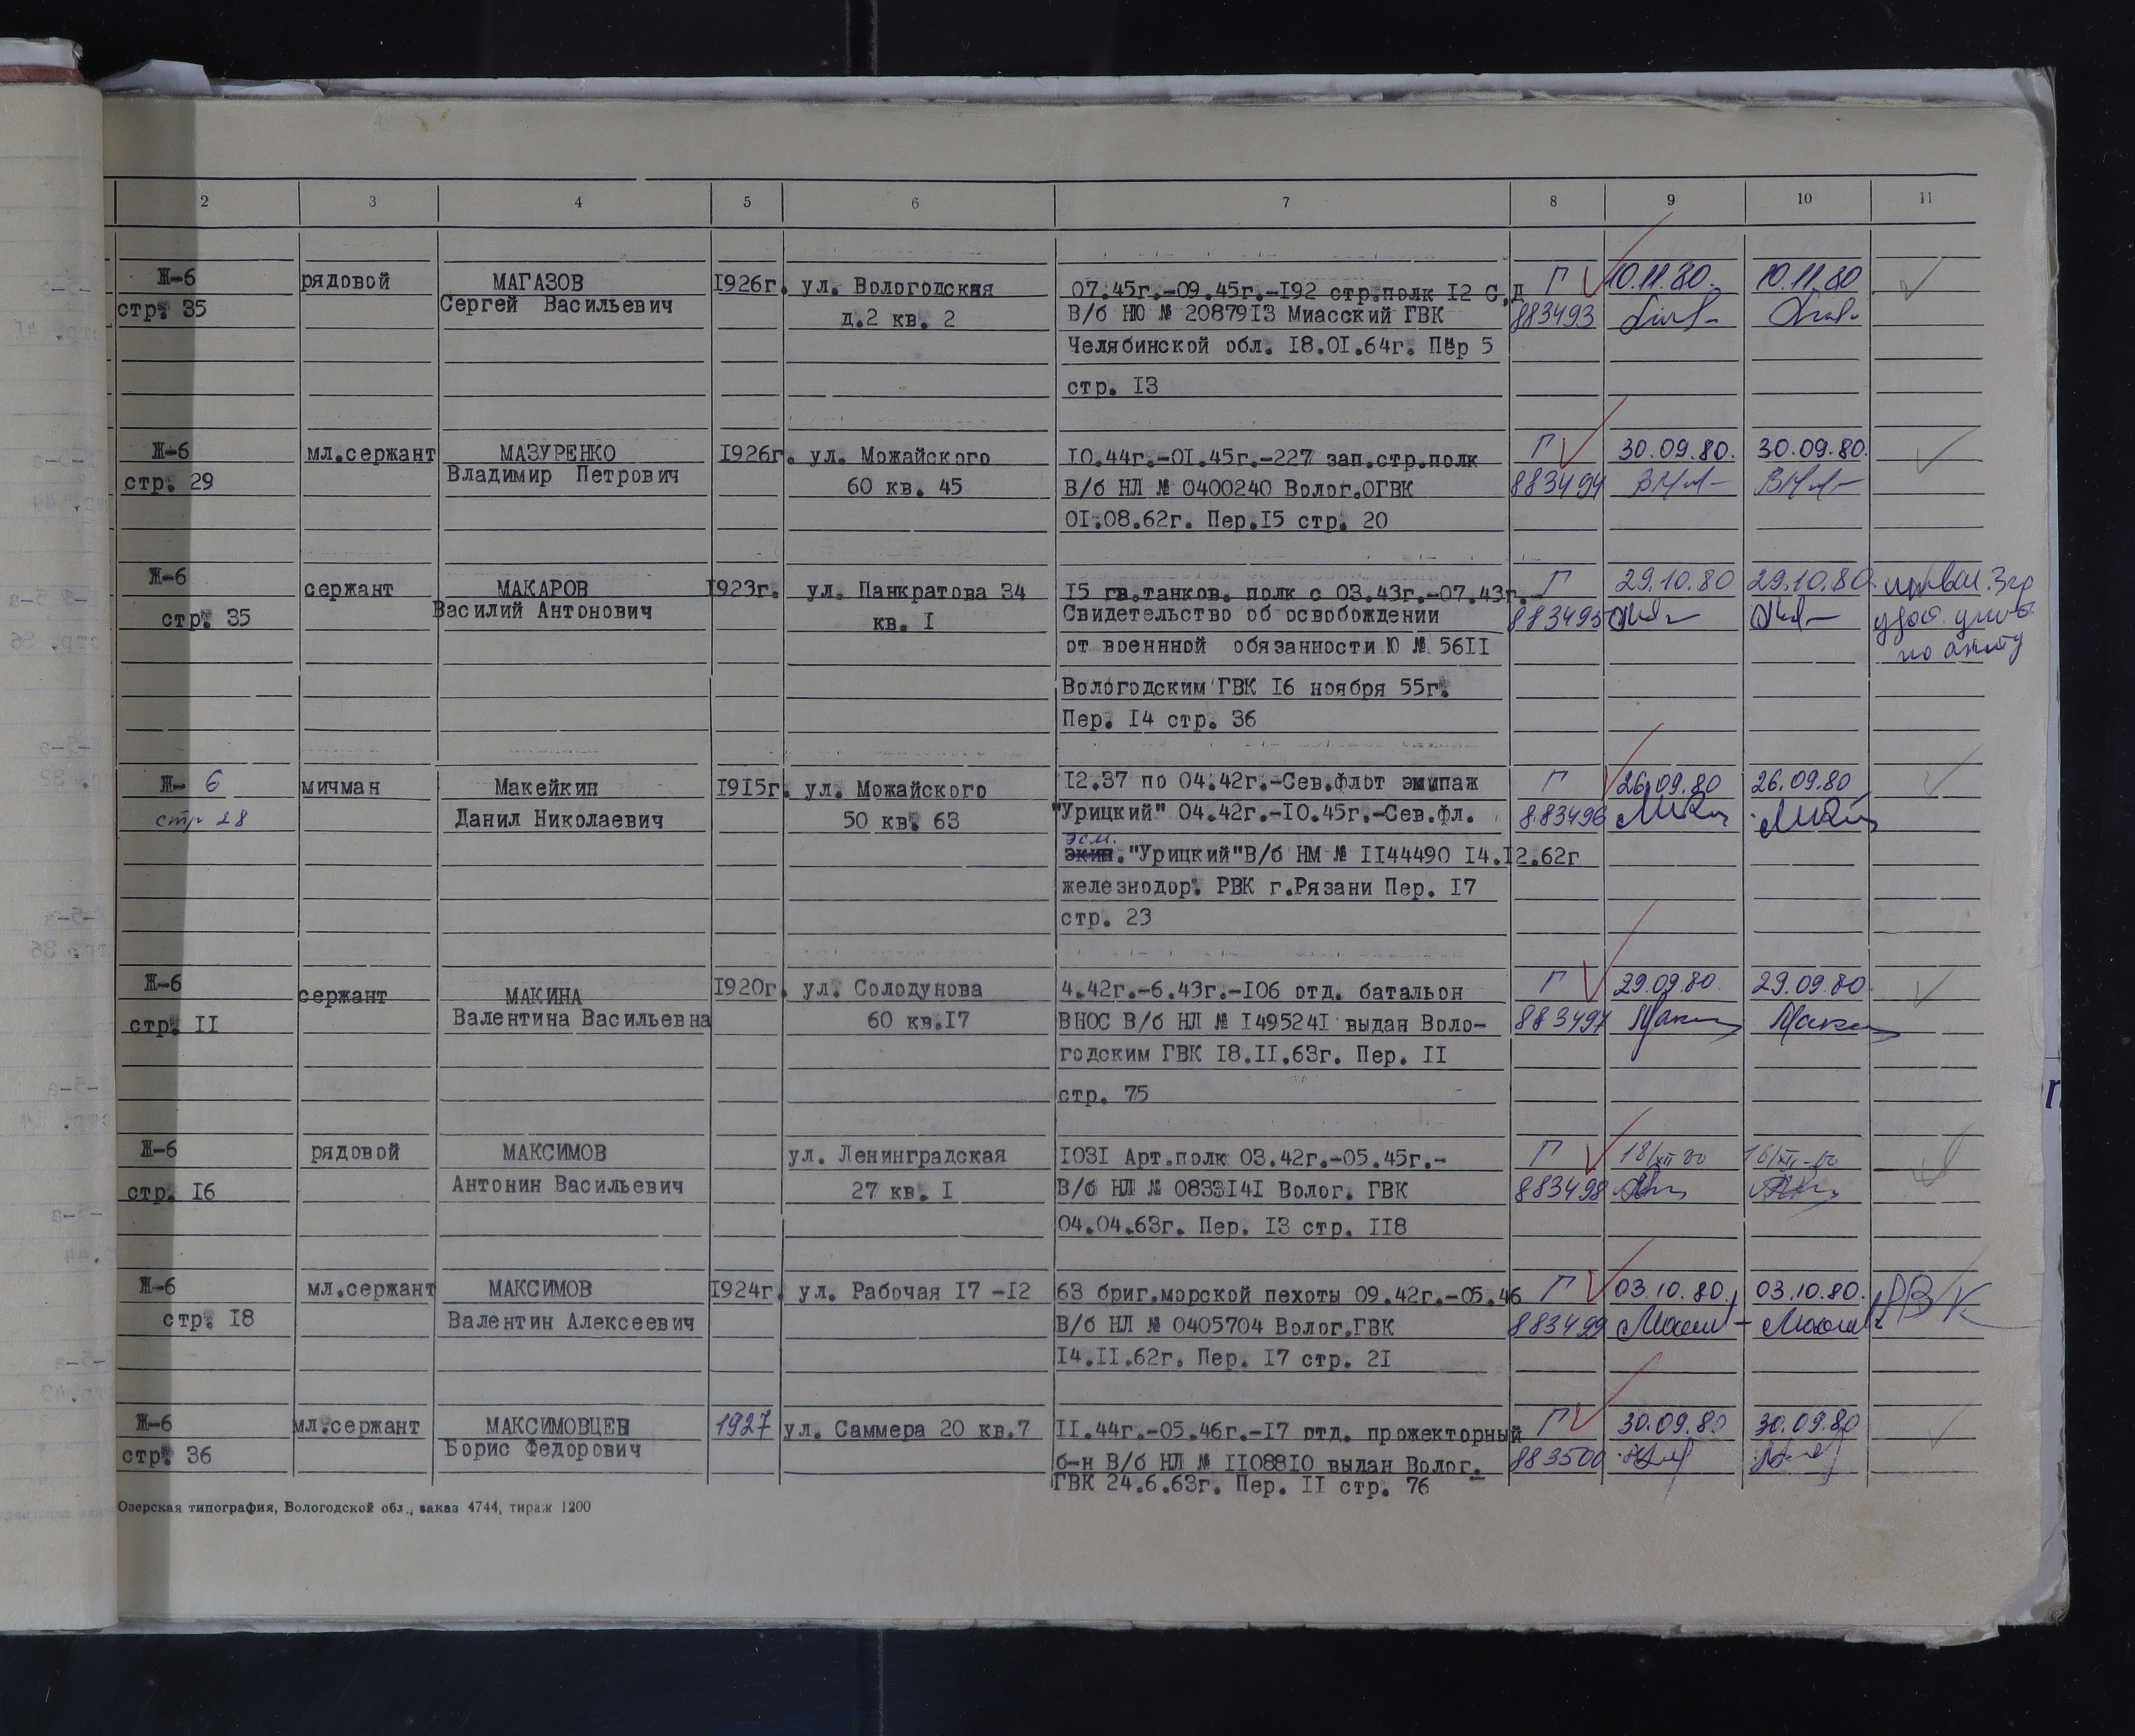 2 3 4 5 6 7 8 9 10 11
Ж-6 рядовой МАГАЗОВ I926г. ул. Вологодская 07.45г.-09.45г.-I92 стр.полк I2 С.Д Г 10.11.80. 10.11.80
стр. 35 Сергей Васильевич д.2 кв. 2 В/б НЮ № 20879I3 Миасский ГВК 883493
Челябинской обл. I8.0I.64г. Пер 5
стр. I3
Ж-6 мл.сержант МАЗУРЕНКО I926г. ул. Можайского I0.44г.-0I.45г.-227 зап.стр.полк Г 30.09.80. 30.09.80.
стр. 29 Владимир Петрович 60 кв. 45 В/б НЛ № 0400240 Волог.ОГВК 883494
0I.08.62г. Пер.I5 стр. 20
Ж-6 сержант МАКАРОВ I923г. ул. Панкратова 34 I5 гв.танков. полк с 03.43г.-07.43г.- Г 29.10.80 29.10.80.
стр. 35 Василий Антонович кв. I Свидетельство об освобождении 883495
от военнной обязанности Ю № 56II
Вологодским ГВК I6 ноября 55г.
Пер. I4 стр. 36
Ж- 6 мичман Макейкин I9I5г. ул. Можайского I2.37 по 04.42г.-Сев.флот экипаж Г 26.09.80 26.09.80
стр 28 Данил Николаевич 50 кв. 63 "Урицкий" 04.42г.-I0.45г.-Сев.фл. 883496
эсм.
"Урицкий"В/б НМ № II44490 I4.I2.62г
железнодор. РВК г.Рязани Пер. I7
стр. 23
Ж-6 сержант МАКИНА I920г. ул. Солодунова 4.42г.-6.43г.-I06 отд. батальон Г 29.09.80. 29.09.80
стр. II Валентина Васильевна 60 кв.I7 ВНОС В/б НЛ № I49524I выдан Воло- 883497
годским ГВК I8.II.63г. Пер. II
стр. 75
Ж-6 рядовой МАКСИМОВ ул. Ленинградская I03I Арт.полк 03.42г.-05.45г.- Г 18/XII 80
стр. I6 Антонин Васильевич 27 кв. I В/б НЛ № 0833I4I Волог. ГВК 883498
04.04.63г. Пер. I3 стр. II8
Ж-6 мл.сержант МАКСИМОВ I924г. ул. Рабочая I7 -I2 63 бриг.морской пехоты 09.42г.-05.46 Г 03.10.80. 03.10.80. РВК
стр. I8 Валентин Алексеевич В/б НЛ № 0405704 Волог.ГВК 883499
I4.II.62г. Пер. I7 стр. 2I
Ж-6 мл.сержант МАКСИМОВЦЕВ 1927 ул. Саммера 20 кв.7 II.44г.-05.46г.-I7 отд. прожекторный Г 30.09.80 30.09.80
стр. 36 Борис Федорович б-н В/б НЛ № II088I0 выдан Волог. 883500
ГВК 24.6.63г. Пер. II стр. 76
Озерская типография, Вологодской обл., заказ 4744, тираж 1200